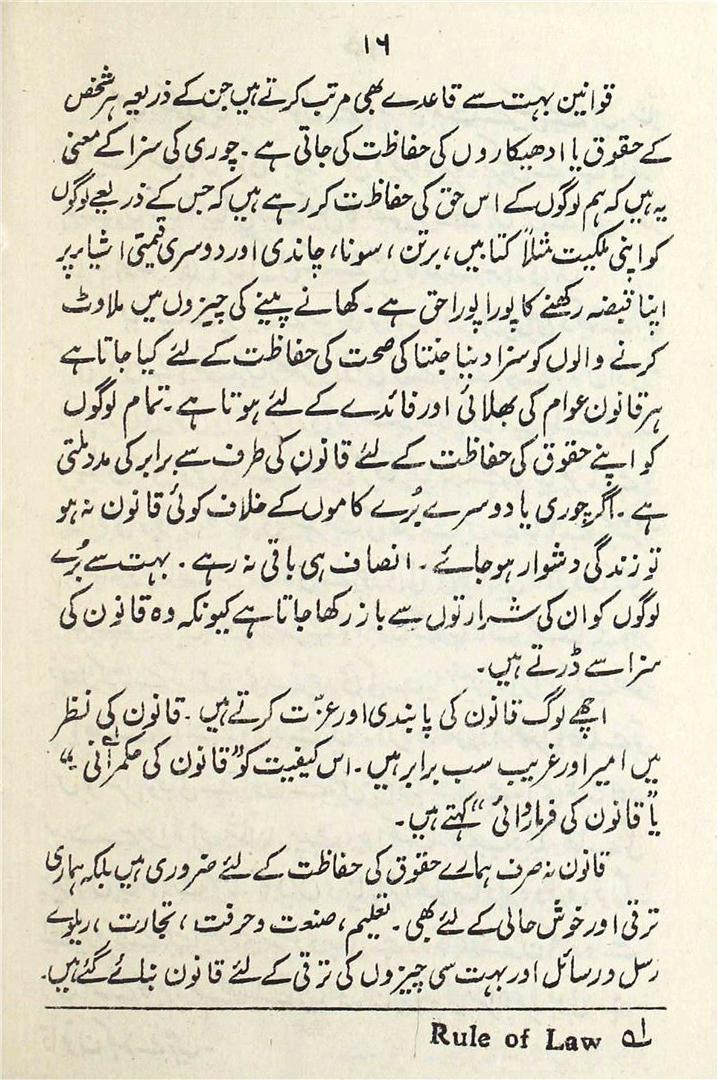 ۱۶
قوانین بہت سے قاعدے بھی مرتب کرتے ہیں جن کے ذریعہ ہر شخص
کے حقوق یا ادھیکاروں کی حفاظت کی جاتی ہے ۔ چوری کی سزا کے معنی
یہ ہیں کہ ہم لوگوں کے اس حق کی حفاظت کر رہے ہیں کہ جس کے ذریعے لوگوں
کو اپنی ملکیت مثلاً کتابیں، برتن، سونا، چاندی اور دوسری قیمتی اشیاء پر
اپنا قبضہ رکھنے کا پورا پورا حق ہے ۔ کھانے پینے کی چیزوں میں ملاوٹ
کرنے والوں کو سزا دینا جنتا کی صحت کی حفاظت کے لئے کیا جاتا ہے
ہر قانون عوام کی بھلائی اور فائدے کے لئے ہوتا ہے ۔ تمام لوگوں
کو اپنے حقوق کی حفاظت کے لئے قانون کی طرف سے برابر کی مدد ملتی
ہے ۔ اگر چوری یا دوسرے بُرے کاموں کے خلاف کوئی قانون نہ ہو
تو زندگی دشوار ہو جائے ۔ انصاف ہی باقی نہ رہے ۔ بہت سے بُرے
لوگوں کو ان کی شرارتوں سے باز رکھا جاتا ہے کیونکہ وہ قانون کی
سزا سے ڈرتے ہیں ۔
اچھے لوگ قانون کی پابندی اور عزّت کرتے ہیں ۔ قانون کی نظر
میں امیر اور غریب سب برابر ہیں ۔ اس کیفیت کو "قانون کی حکمرانی ۱ے"
یا "قانون کی فرماروائی" کہتے ہیں ۔
قانون نہ صرف ہمارے حقوق کی حفاظت کے لئے ضروری ہیں بلکہ ہماری
ترقی اور خوش حالی کے لئے بھی ۔ تعلیم، صنعت و حرفت، تجارت، ریلوے
رسل و رسائل اور بہت سی چیزوں کی ترقی کے لئے قانون بنائے گئے ہیں ۔
۱ے Rule of Law